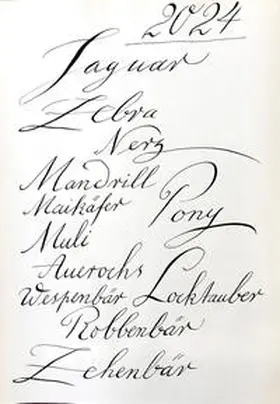 2024
Jaguar
Zebra
Nerz
Mandrill
Maikäfer
Pony
Muli
Auerochs
Wespenbär Locktauber
Robbenbär
Zehenbär